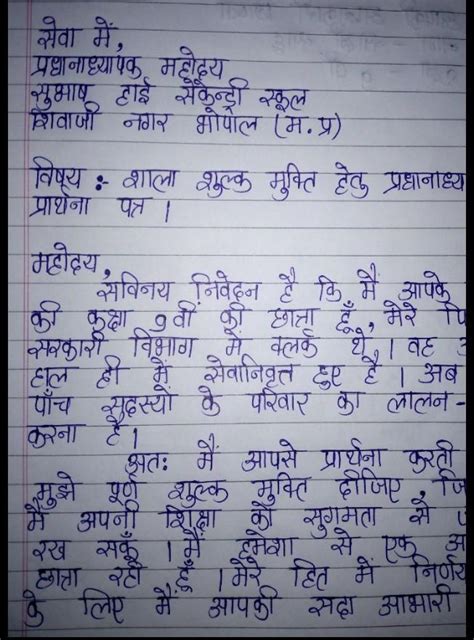 सेवा में,
प्रधानाध्यापक महोदय
सुभाष हाई सेकेन्ड्री स्कूल
शिवाजी नगर भोपाल (म.प्र)
विषय :- शाला शुल्क मुक्ति हेतु प्रधानाध्य
प्रार्थना पत्र ।
महोदय,
सविनय निवेदन है कि मैं आपके
की कक्षा 9वीं की छात्रा हूँ, मेरे पि
सरकारी विभाग में क्लर्क थे । वह
हाल ही में सेवानिवृत्त हुए है । अब
पाँच सदस्यों के परिवार का लालन-
करना है ।
अतः मैं आपसे प्रार्थना करती
मुझे पूर्ण शुल्क मुक्ति दीजिए, जि
मैं अपनी शिक्षा को सुगमता से
रख सकूँ । मैं हमेशा से एक
छात्रा रही हूँ । मेरे हित में निर्णय
के लिए मैं आपकी सदा आभारी